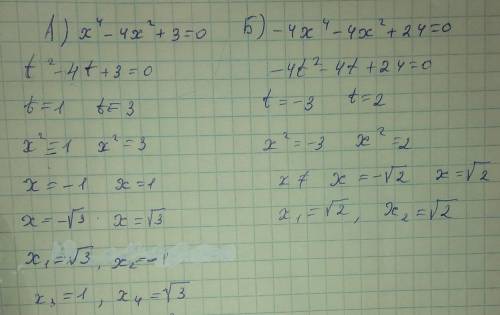 А) x⁴-4x²+3=0
t²-4t+3=0
t=1 t=3
x²=1 x²=3
x=-1 x=1
x=-√3 x=√3
x₁=√3, x₂=-1
x₃=1, x₄=√3
Б) -4x⁴-4x²+24=0
-4t²-4t+24=0
t=-3 t=2
x²=-3 x²=2
x≠ x=-√2 x=√2
x₁=√2, x₂=√2